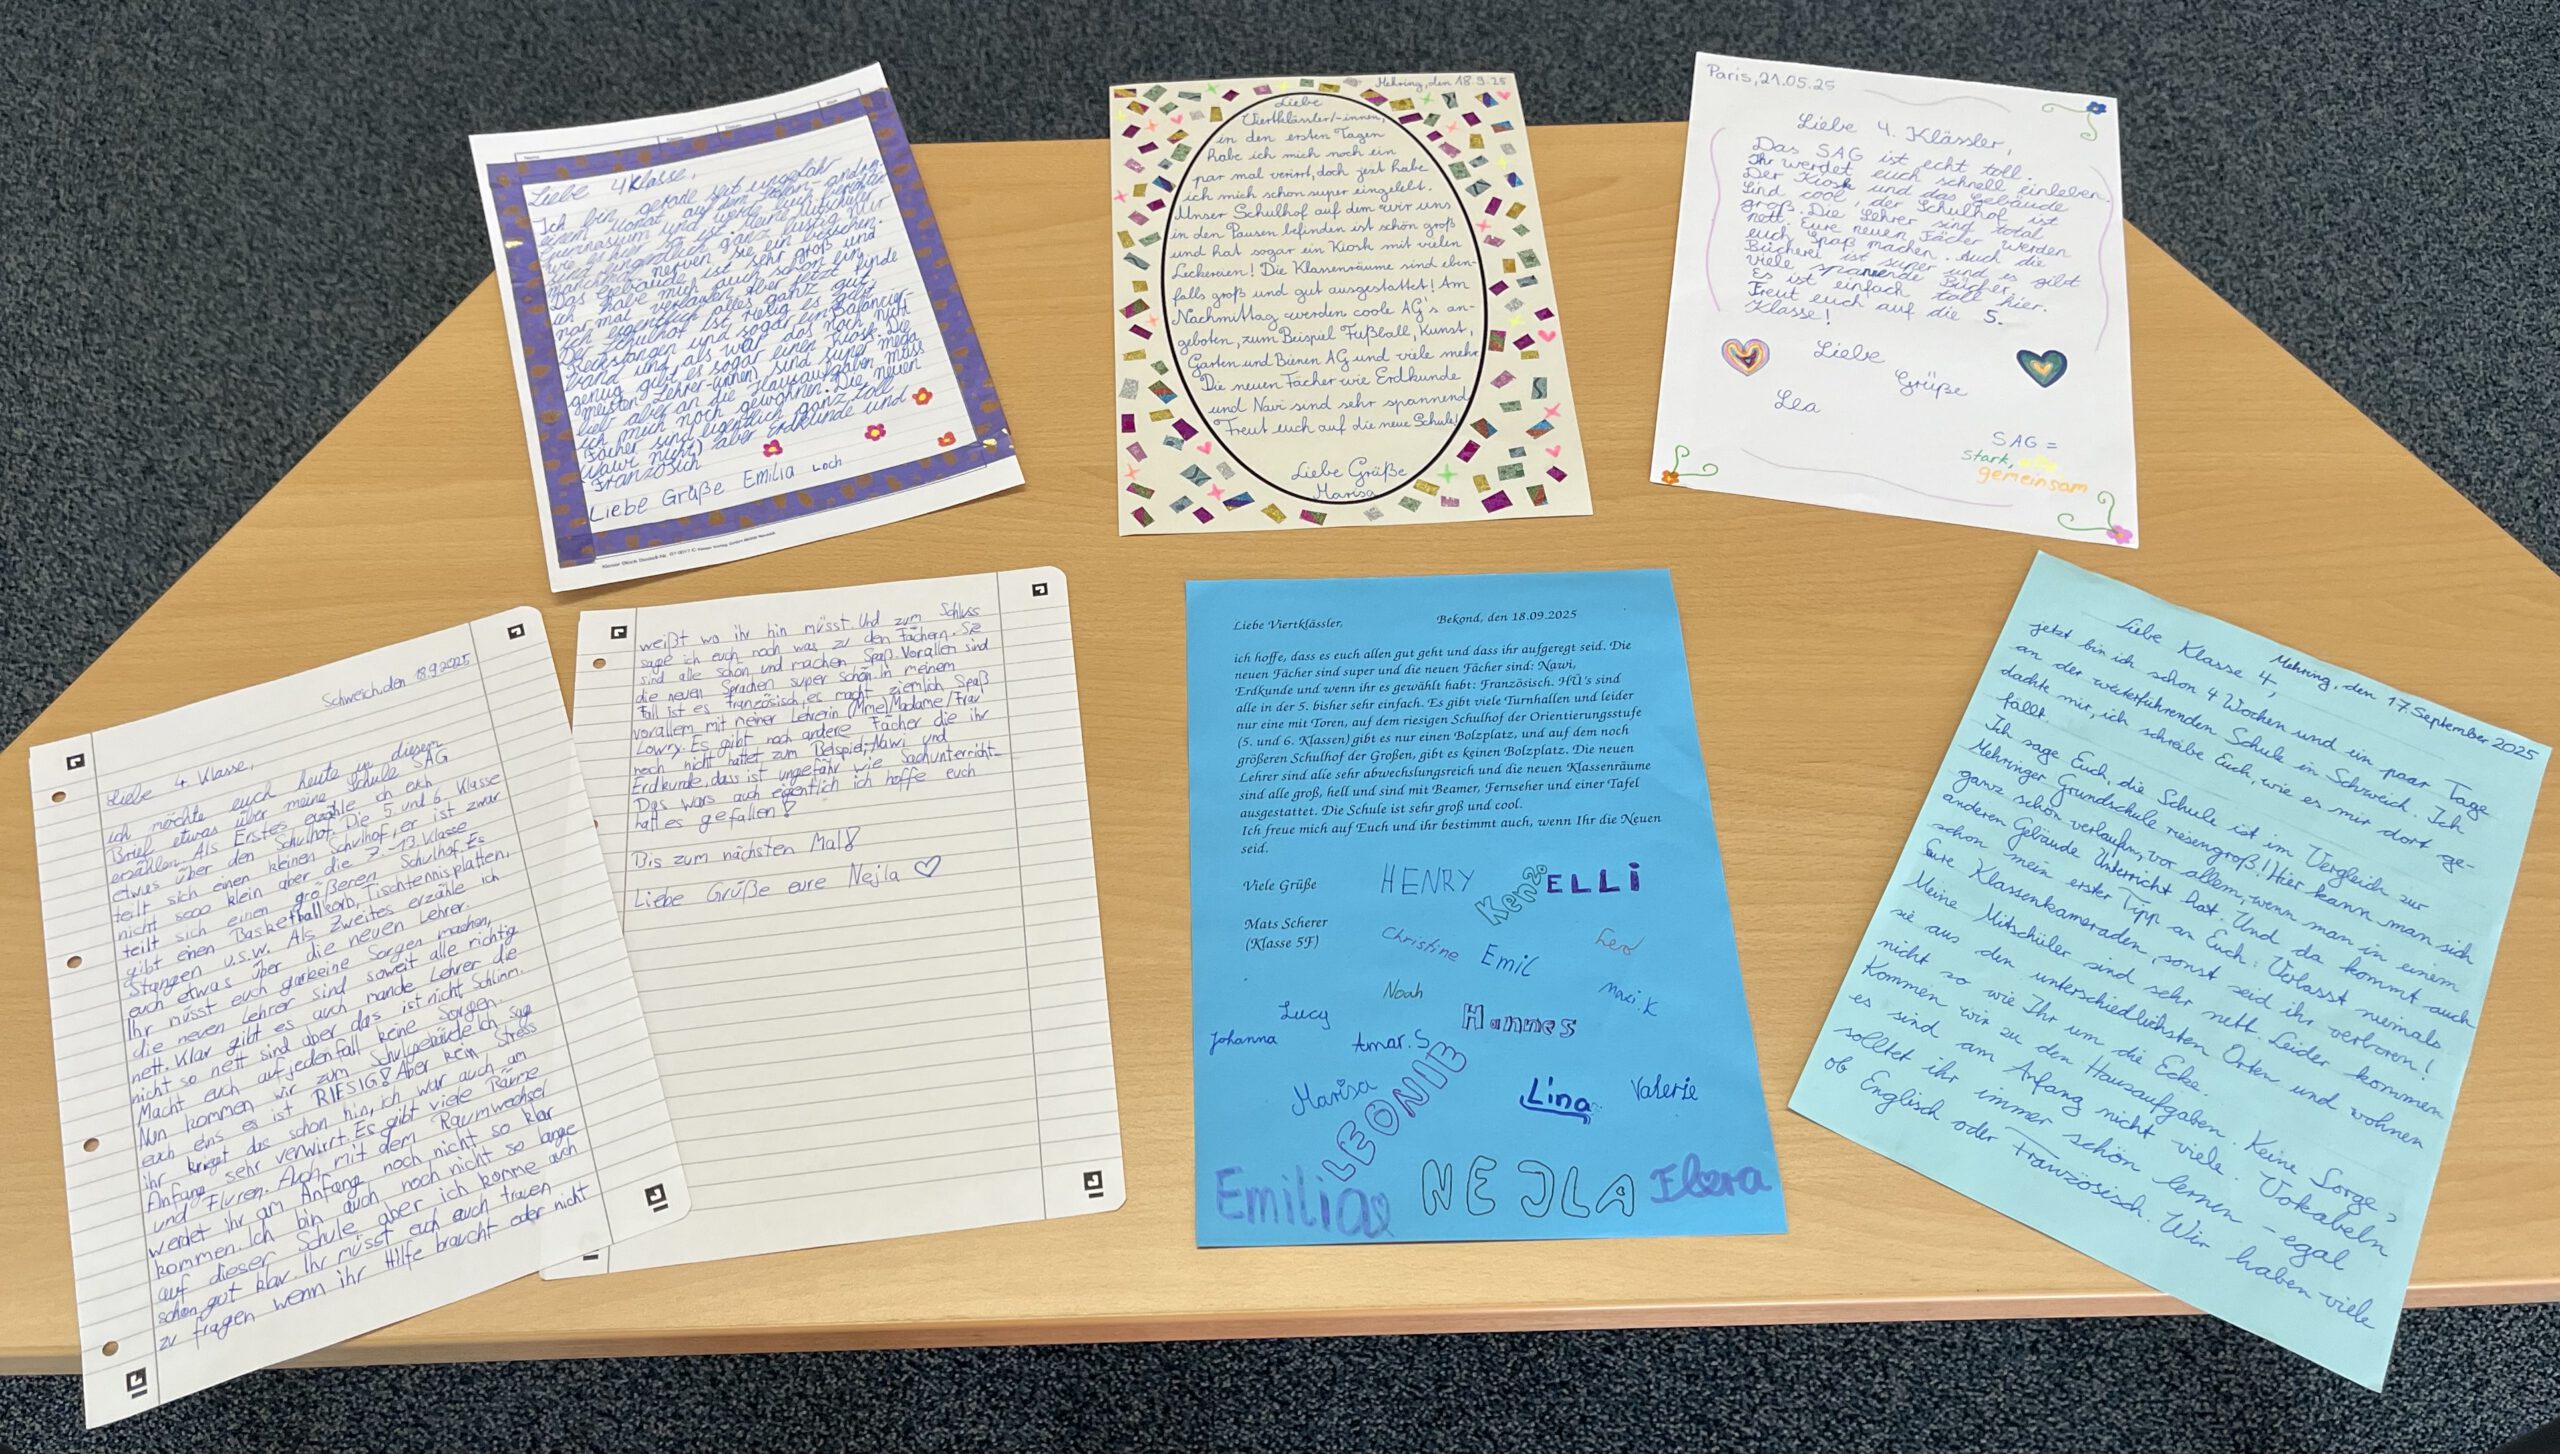 Liebe 4Klasse,
Ich bin gerade seit ungefähr
einem Monat auf dem Stefan-Andres-
Gymnasium und werde euch berichten
wie es hier so ist. Meine Mitschüler
sind eigendlich ganz lustig nur
manchmal nerven sie ein bisschen.
Das Gebäude ist sehr groß und
ich habe mich auch schon ein
par mal verlaufen aber jetzt finde
ich eigentlich alles ganz gut.
Der Schulhof ist riesig es gibt
Reckstangen und sogar ein Balancier-
band und als wär das noch nicht
genug gibt es sogar einen Kiosk. Die
meisten Lehrer(-innen) sind super mega
lieb aber an die Hausaufgaben muss
ich mich noch gewöhnen. Die neuen
Fächer sind eigentlich ganz toll
(Nawi nicht) aber Erdkunde und
Französich
Liebe Grüße Emilia Loch
Mehring, den 18.9.25
Liebe
Viertklässler/-innen,
in den ersten Tagen
habe ich mich noch ein
par mal verirrt, doch jezt habe
ich mich schon super eingelebt.
Unser Schulhof auf dem wir uns
in den Pausen befinden ist schön groß
und hat sogar ein Kiosk mit vielen
Leckereien! Die Klassenräume sind eben-
falls groß und gut ausgestattet! Am
Nachmittag werden coole AG's an-
geboten, zum Beispiel Fußball, Kunst,
Garten und Bienen AG und viele mehr.
Die neuen Fächer wie Erdkunde
und Nawi sind sehr spannend
Freut euch auf die neue Schule!
Liebe Grüße
Marisa
Paris, 21.05.25
Liebe 4. Klässler,
Das SAG ist echt toll.
Ihr werdet euch schnell einleben.
Der Kiosk und das Gebäude
sind cool, der Schulhof ist
groß. Die Lehrer sind total
nett. Eure neuen Fächer werden
euch Spaß machen. Auch die
Bücherei ist super und es gibt
viele spannende Bücher.
Es ist einfach toll hier.
Freut euch auf die 5.
Klasse!
Liebe
Grüße
Lea
SAG =
stark,
gemeinsam
Schweich, den 18.9.2025
Liebe 4 Klasse,
ich möchte euch heute in diesem
Brief etwas über meine Schule SAG
erzählen. Als Erstes erzähle ich euch
etwas über den Schulhof. Die 5. und 6. Klasse
teilt sich einen kleinen Schulhof, er ist zwar
nicht sooo klein aber die 7.-13. Klasse
teilt sich einen größeren Schulhof. Es
gibt einen Basketballkorb, Tischtennisplatten,
Stangen u.s.w. Als Zweites erzähle ich
euch etwas über die neuen Lehrer.
Ihr müsst euch garkeine Sorgen machen,
die neuen Lehrer sind soweit alle richtig
nett. Klar gibt es auch mande Lehrer die
nicht so nett sind aber das ist nicht Schlimm.
Macht euch aufjedenfall keine Sorgen.
Nun kommen wir zum Schulgebäude. Ich sag
euch eins es ist RIESIG! Aber kein Stress
ihr krieget das schon hin, ich war auch am
Anfang sehr verwirrt. Es gibt viele Räume
und Fluren. Auch mit dem Raumwechsel
werdet ihr am Anfang noch nicht so klar
kommen. Ich bin auch noch nicht so lange
auf dieser Schule aber ich komme auch
schon gut klar. Ihr müsst euch auch trauen
zu fragen wenn ihr Hilfe braucht oder nicht
weißt wo ihr hin müsst. Und zum Schluss
sage ich euch noch was zu den Fächern. Sie
sind alle schön und machen Spaß. Vorallen sind
die neuen Sprachen super schön. In meinem
Fall ist es französisch, es macht ziemlich Spaß
vorallem mit meiner Lehrerin (Mme)/Madame/Frau
Lowry. Es gibt noch andere Fächer die ihr
noch nicht hattet zum Beispiel: Nawi und
Erdkunde, dass ist ungefähr wie Sachunterricht.
Das wars auch eigentlich ich hoffe euch
hatt es gefallen!
Bis zum nächsten Mal!
Liebe Grüße eure Nejla
Liebe Viertklässler, Bekond, den 18.09.2025
ich hoffe, dass es euch allen gut geht und dass ihr aufgeregt seid. Die
neuen Fächer sind super und die neuen Fächer sind: Nawi,
Erdkunde und wenn ihr es gewählt habt: Französisch. HÜ's sind
alle in der 5. bisher sehr einfach. Es gibt viele Turnhallen und leider
nur eine mit Toren, auf dem riesigen Schulhof der Orientierungsstufe
(5. und 6. Klassen) gibt es nur einen Bolzplatz, und auf dem noch
größeren Schulhof der Großen, gibt es keinen Bolzplatz. Die neuen
Lehrer sind alle sehr abwechslungsreich und die neuen Klassenräume
sind alle groß, hell und sind mit Beamer, Fernseher und einer Tafel
ausgestattet. Die Schule ist sehr groß und cool.
Ich freue mich auf Euch und ihr bestimmt auch, wenn Ihr die Neuen
seid.
Viele Grüße
Mats Scherer
(Klasse 5F)
HENRY
ELLI
Christine
Emil
Leo
Noah
Maxi.K
Lucy
Hannes
Johanna
Amar.S
Marisa
LEONIE
Lina
Valerie
Emilia
NEJLA
Mehring, den 17. September 2025
Liebe Klasse 4,
jetzt bin ich schon 4 Wochen und ein paar Tage
an der weiterführenden Schule in Schweich. Ich
dachte mir, ich schreibe Euch, wie es mir dort ge-
fällt.
Ich sage Euch, die Schule ist im Vergleich zur
Mehringer Grundschule riesengroß!! Hier kann man sich
ganz schön verlaufen, vor allem, wenn man in einem
anderen Gebäude Unterricht hat. Und da kommt auch
schon mein erster Tipp an Euch: Verlasst niemals
Eure Klassenkameraden, sonst seid ihr verloren!
Meine Mitschüler sind sehr nett. Leider kommen
sie aus den unterschiedlichsten Orten und wohnen
nicht so wie Ihr um die Ecke.
Kommen wir zu den Hausaufgaben. Keine Sorge,
es sind am Anfang nicht viele. Vokabeln
solltet ihr immer schön lernen - egal
ob Englisch oder Französisch. Wir haben viele